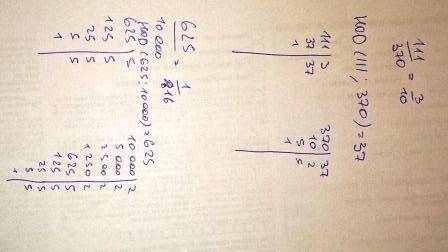 111/370 = 3/10
НОД (111; 370) = 37
111 | 3
37 | 37
1
370 | 37
10 | 2
5 | 5
1
625/10000 = 1/16
НОД (625; 10000) = 625
625 | 5
125 | 5
25 | 5
5 | 5
1
10000 | 2
5000 | 2
2500 | 2
1250 | 2
625 | 5
125 | 5
25 | 5
5 | 5
1